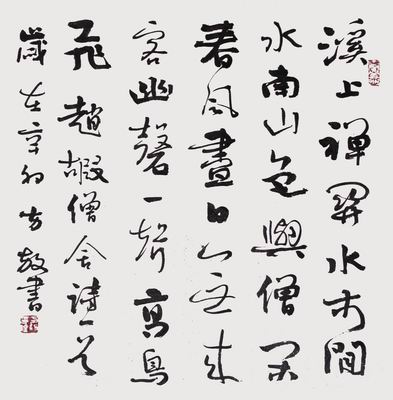 溪上禪関水木間
水南山色與僧閑
春风晝日无来
客幽磬一聲高鳥
飛趙嘏僧舍詩一首
歲在辛卯方 書